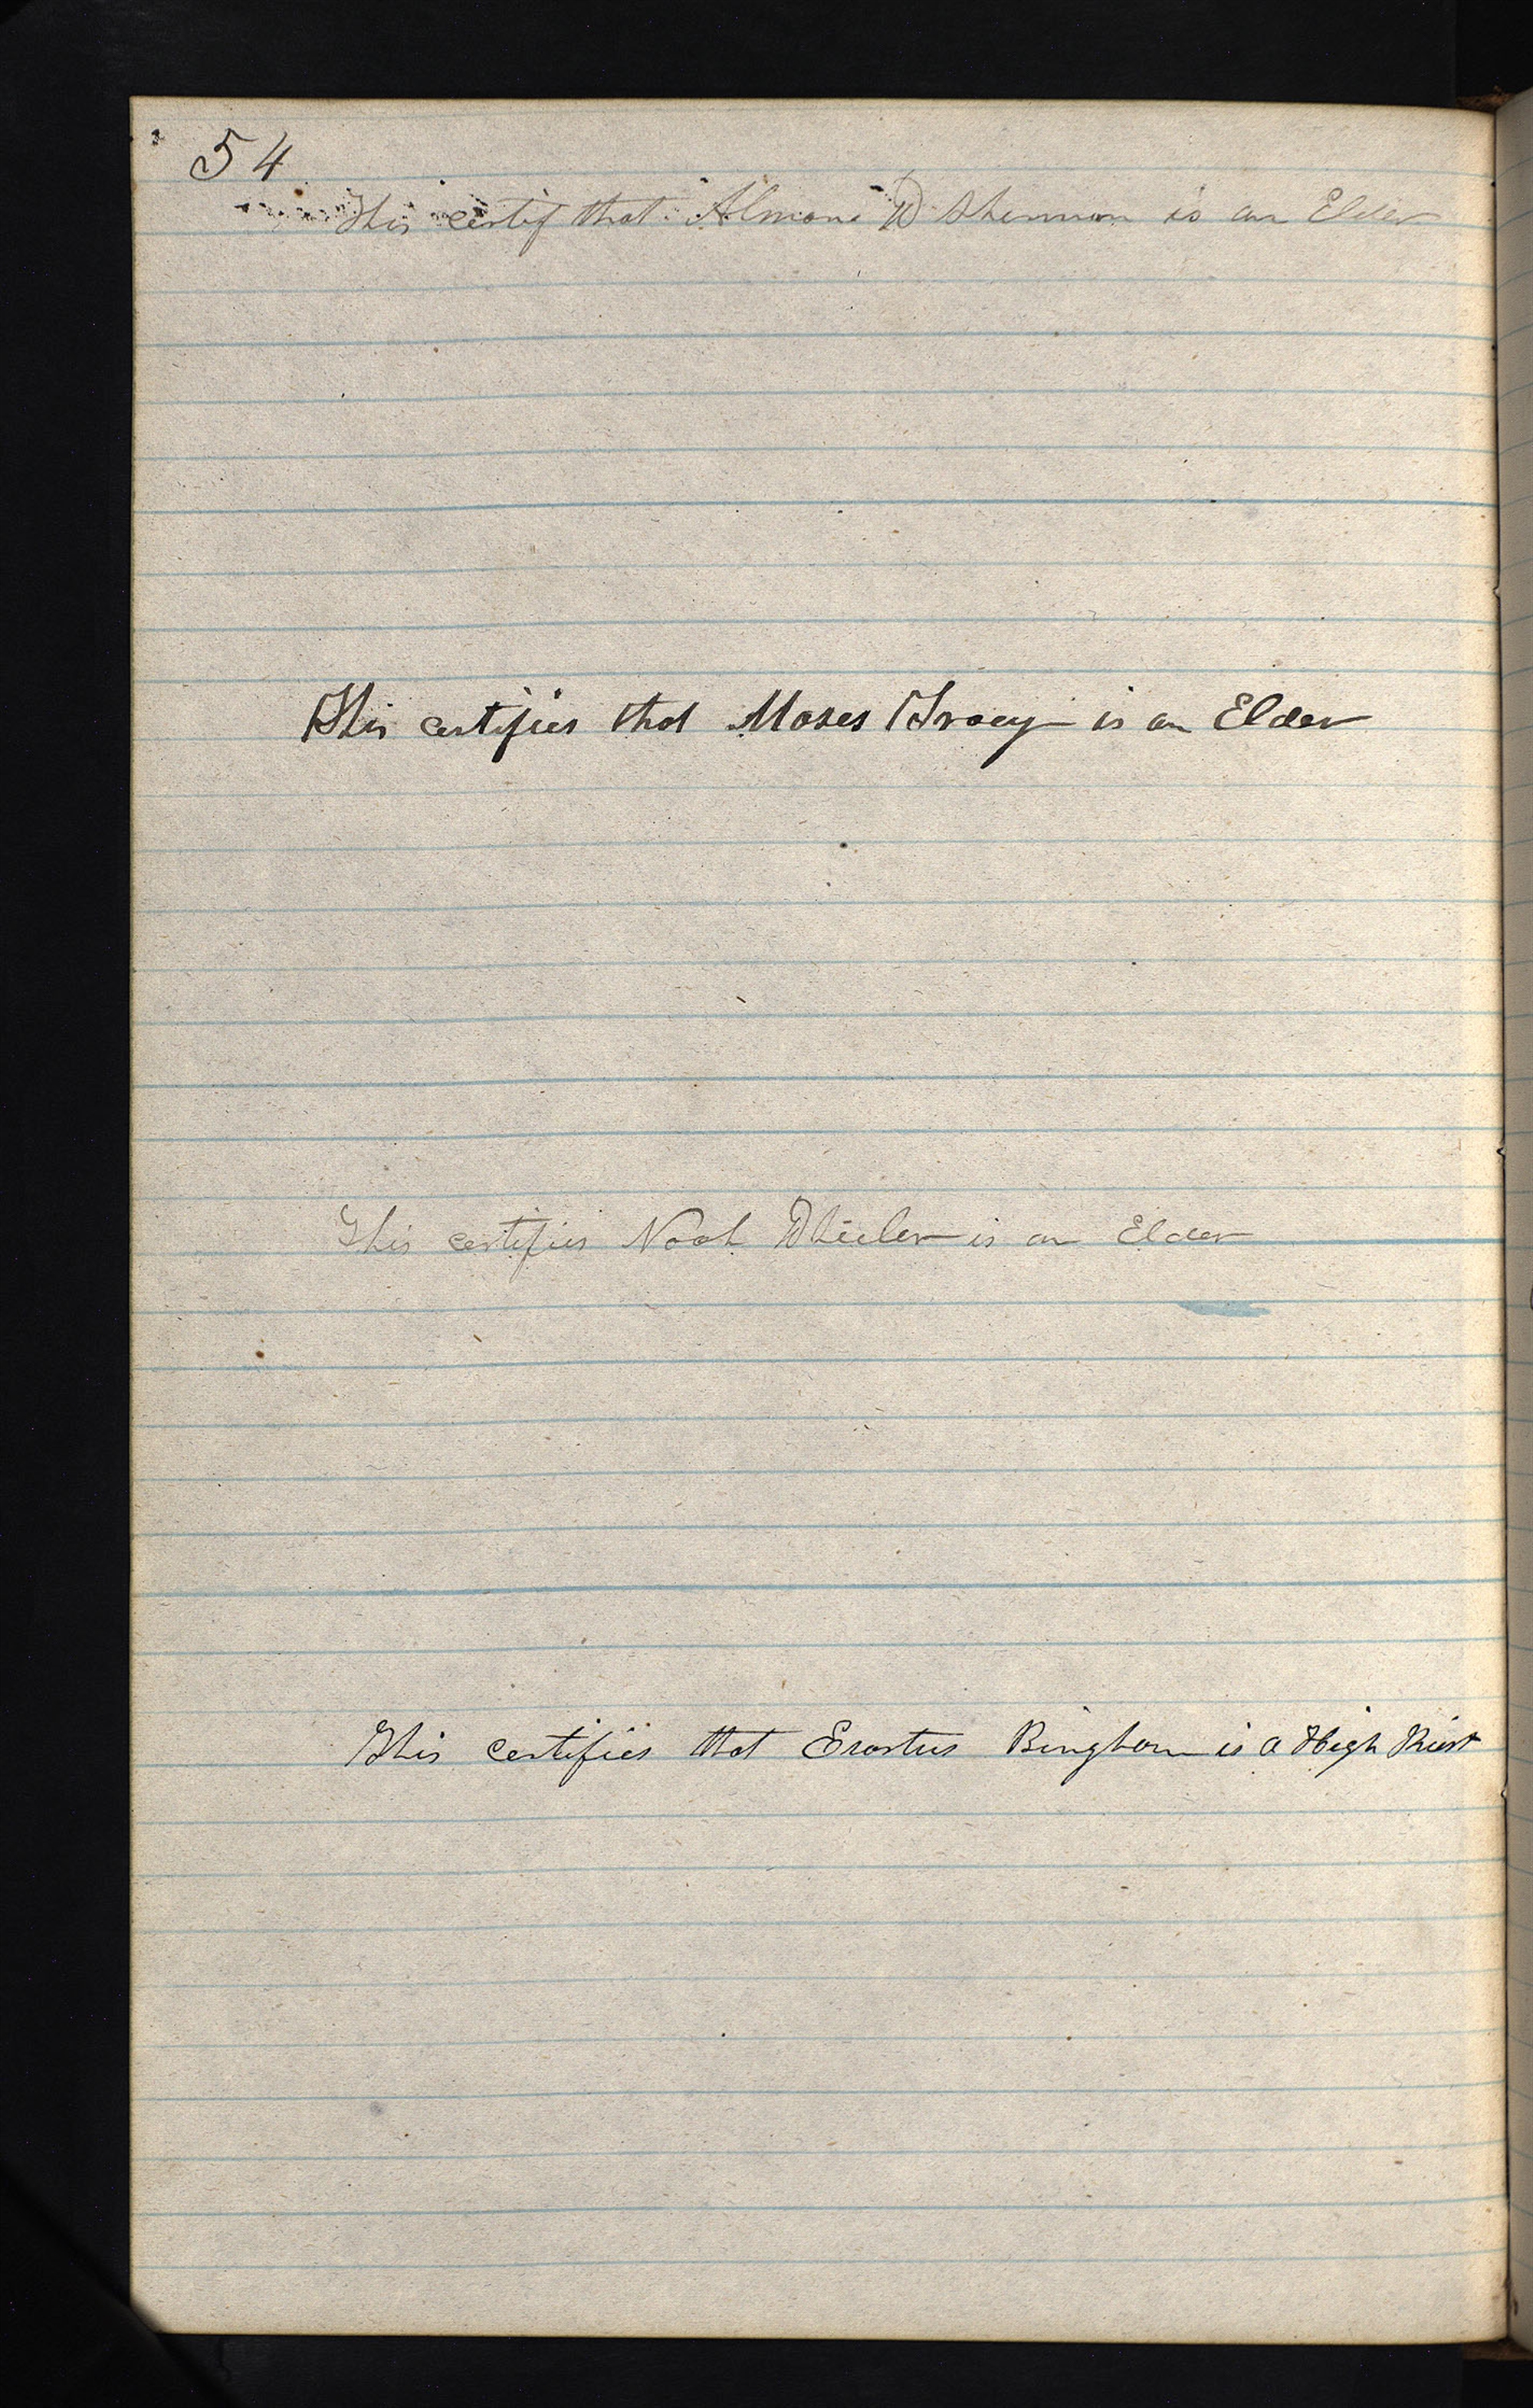 54
This certif that Almon W Sherman is an Elder
This certifies that Moses Tracy is an Elder
This certifies Noah Wheeler is an Elder
This certifies that Erastus Bingham is a High Priest